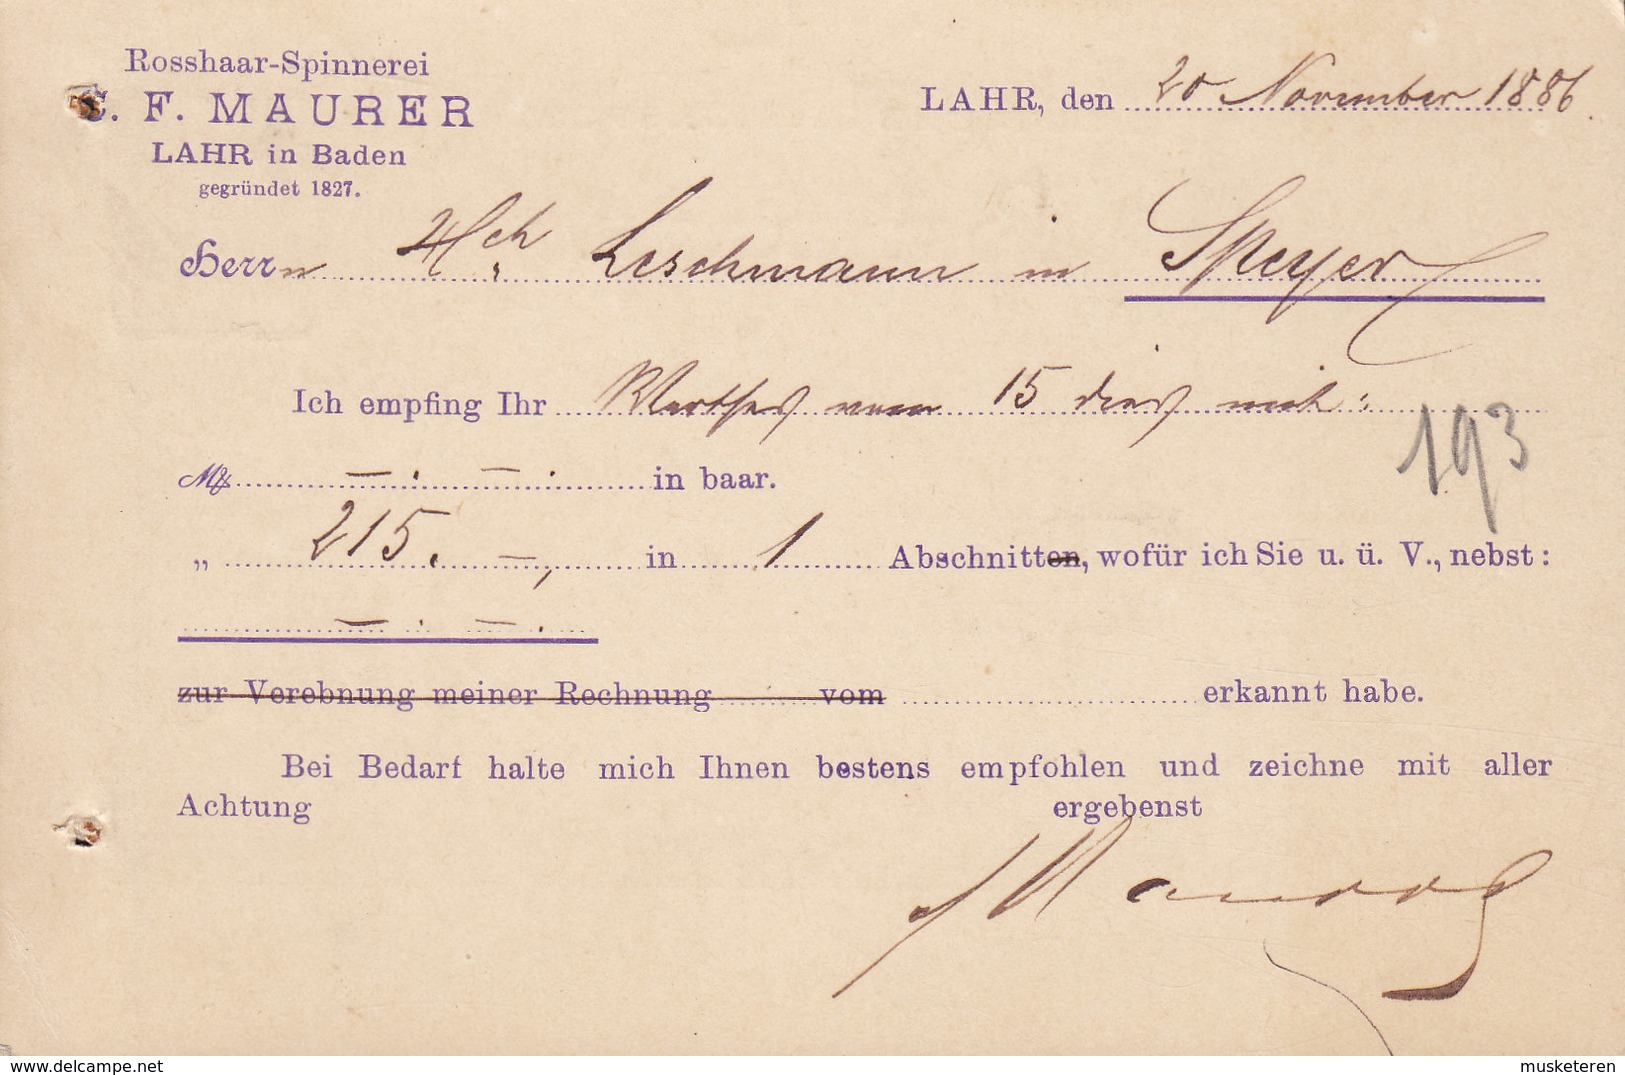 Rosshaar-Spinnerei
C. F. MAURER
LAHR in Baden
gegründet 1827.
LAHR, den 20 November 1886.
Herrn Hch Leschmann in Speyer
Ich empfing Ihr Werthes vom 15 dies mit:
M —. —. in baar.
„ 215. —, in 1 Abschnitten, wofür ich Sie u. ü. V., nebst:
—. —.
zur Verebnung meiner Rechnung vom erkannt habe.
193
Bei Bedarf halte mich Ihnen bestens empfohlen und zeichne mit aller
Achtung ergebenst
delcampe.net
musketeren